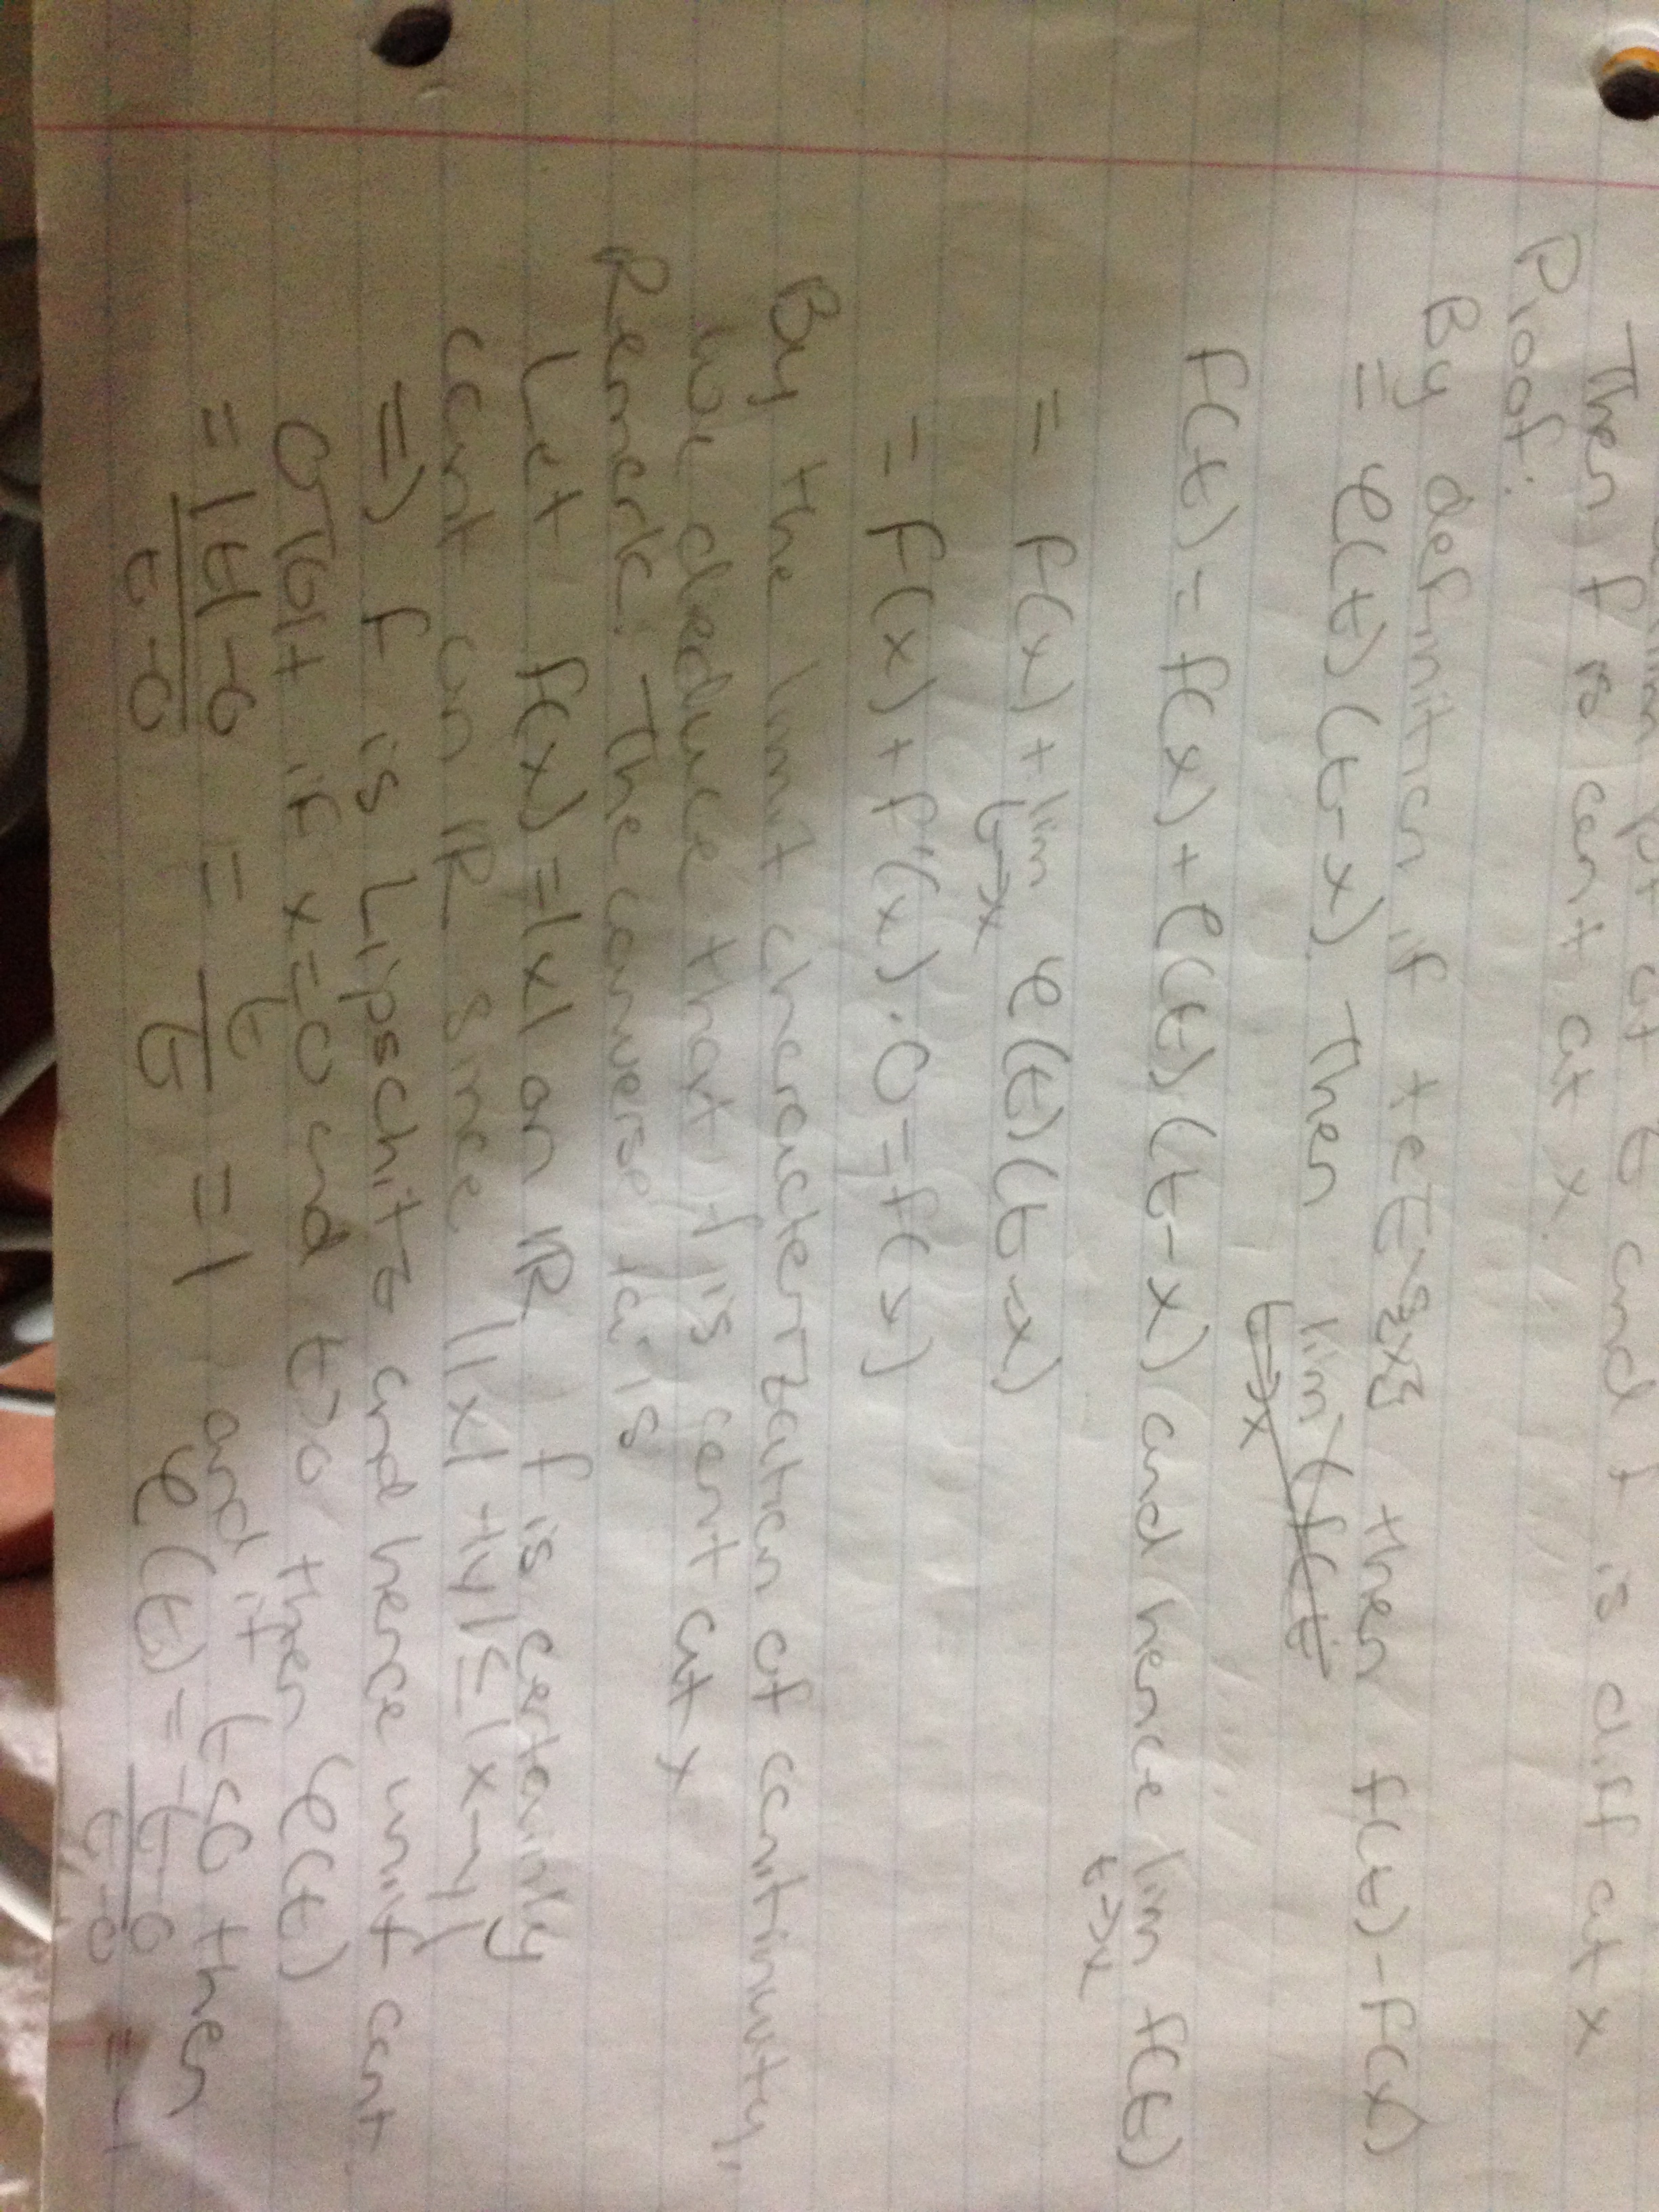 pt of E and f is diff at x
Then f is cont at x.
Proof:
By definition if t∈E\{x} then f(t)-f(x)
= φ(t)(t-x). Then lim (f(t)
t→x
f(t) = f(x) + φ(t)(t-x) and hence lim f(t)
t→x
= f(x) + lim φ(t)(t-x)
t→x
= f(x) + f'(x)·0 = f(x)
By the limit characterization of continuity,
we deduce that f is cont at x
Remark: The converse fails
Let f(x) = |x| on ℝ f is certainly
cont on ℝ since ||x| - |y|| ≤ |x-y|
⇒ f is Lipschitz and hence unif cont
if x=0 and t>0 then φ(t)
= |t|-0 / t-0 = t/t = 1 and if t<0 then
φ(t) = -t-0 / t-0 = -1